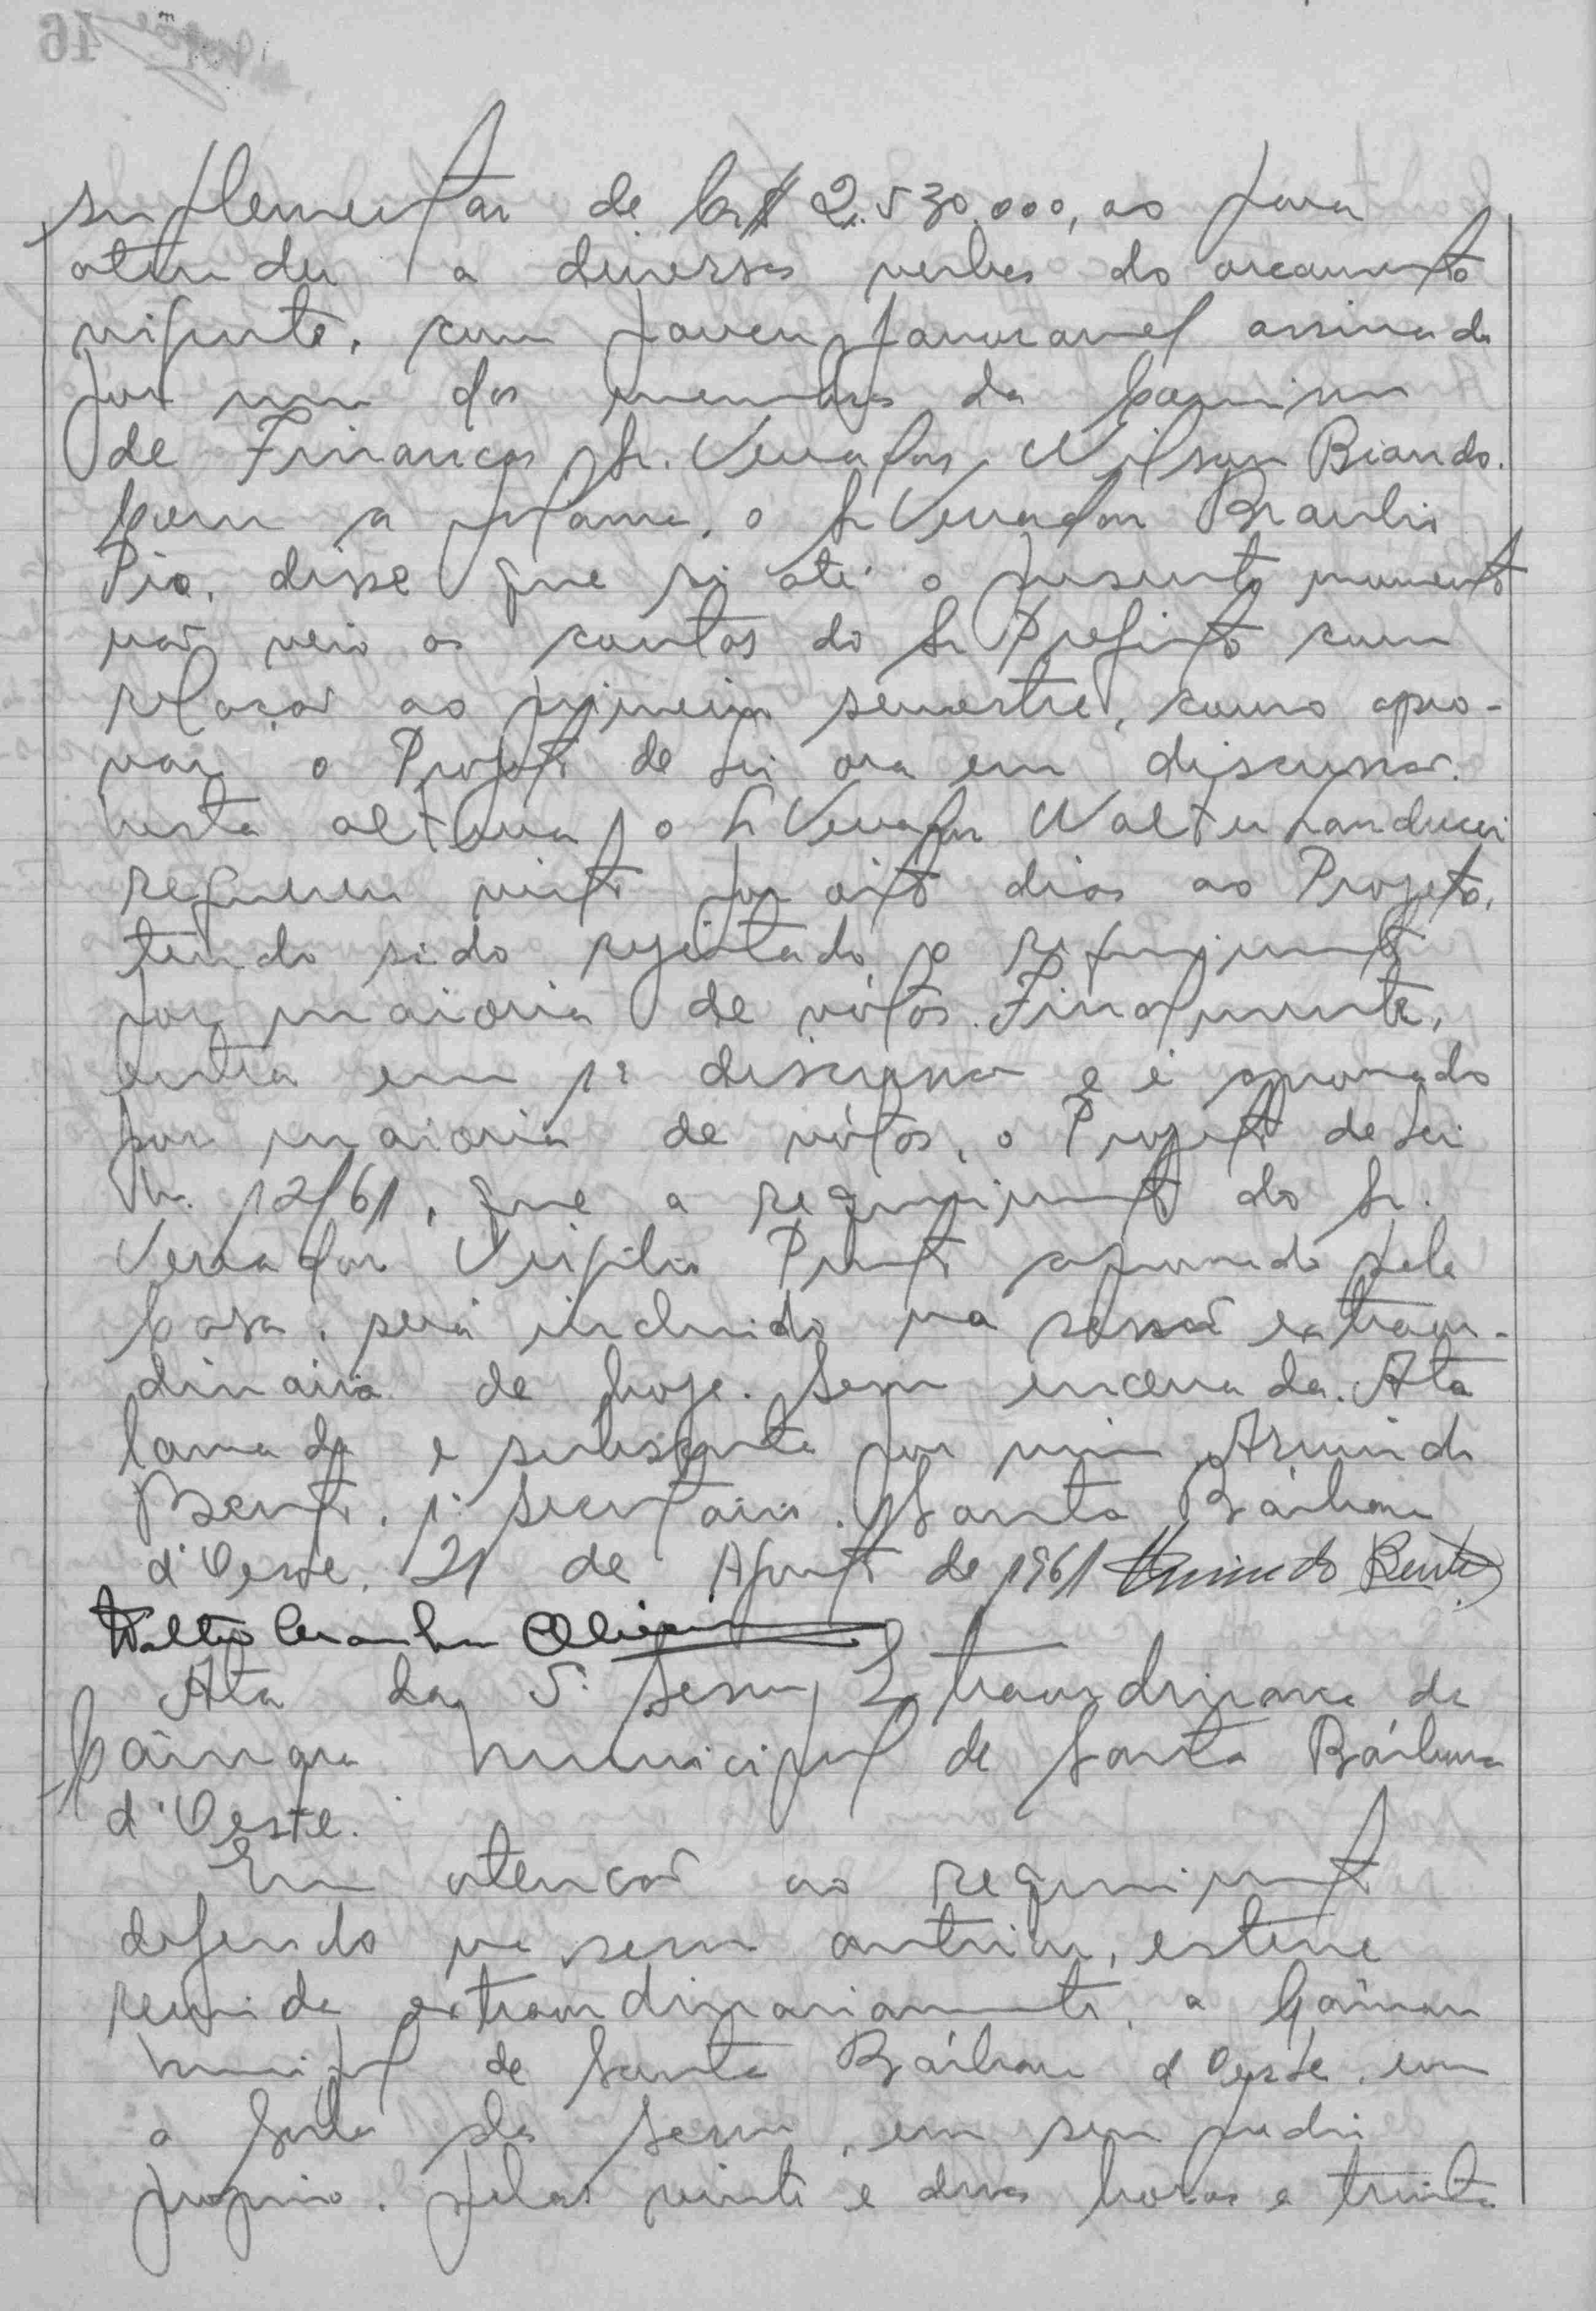 suplementar de Cr$ 2.530.000,00 para
atender a diversas verbas do orcamento
vigente, com parecer favoravel assinado
por um dos membros da Comissão
de Financas, Sr. Vereador, Wilson Biando.
Com a palavra, o Sr Vereador Braulio
Pio, disse que si até o presente momento
não veio as contas do Sr Prefeito com
relação ao primeiro semestre, como apro-
var o Projeto de Lei ora em discussão.
Nesta altura, o Sr Vereador Walter Landucci
requereu vista por oito dias ao Projeto,
tendo sido rejeitado o requerimento
por maioria de vótos. Finalmente,
entra em 1ª discussão e é aprovado
por maioria de vótos, o Projeto de Lei
Nº. 12/61, que a requerimento do Sr.
Vereador Virgilio aprovado pela
Casa, será incluido na sessão extraor-
dinaria de hoje. Sessão encerrada. Ata
lavrada e subscrita por mim Armindo
Bento, 1º Secretario. Santa Bárbara
d'Oeste, 21 de Agosto de 1961 Armindo Bento
Walter Oliveira
Ata da 5ª Sessão Extraordinaria da
Câmara Municipal de Santa Bárbara
d'Oeste.
Em atenção ao requerimento
deferido na sessão anterior, esteve
reunida extraordinariamente, a Câmara
Municipal de Santa Bárbara d'Oeste, em
a Sala das Sessões, em seu predio
proprio, pelas vinte e duas horas e trinta